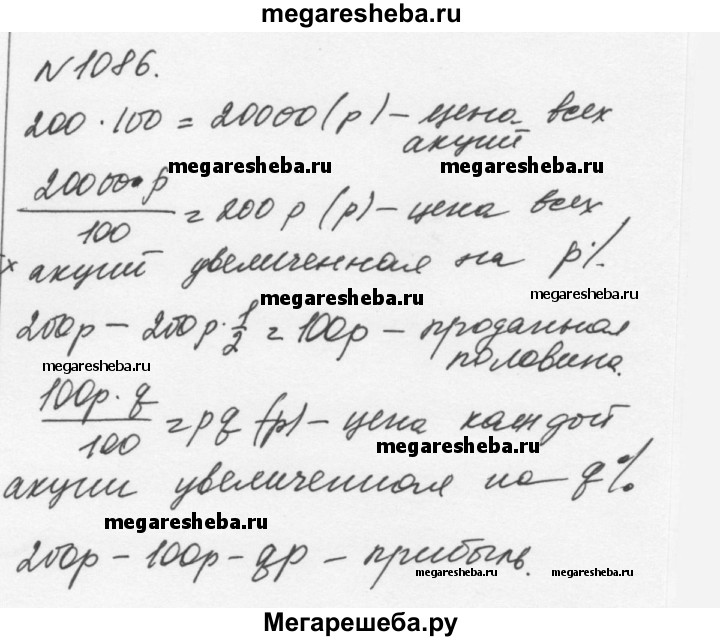 megaresheba.ru
N 1086.
200 · 100 = 20000 (р) – цена всех
акций
megaresheba.ru megaresheba.ru
20000 · p
100
= 200 p (р) – цена всех
акций увеличенная на p%.
megaresheba.ru megaresheba.ru
200p – 200p · 1/2 = 100p – проданная
половина.
megaresheba.ru megaresheba.ru
100p · q
100
= pq (р) – цена каждой
megaresheba.ru
акции увеличенная на q%
megaresheba.ru
200p – 100p – qp – прибыль.
megaresheba.ru megaresheba.ru
Мегарешеба.ру